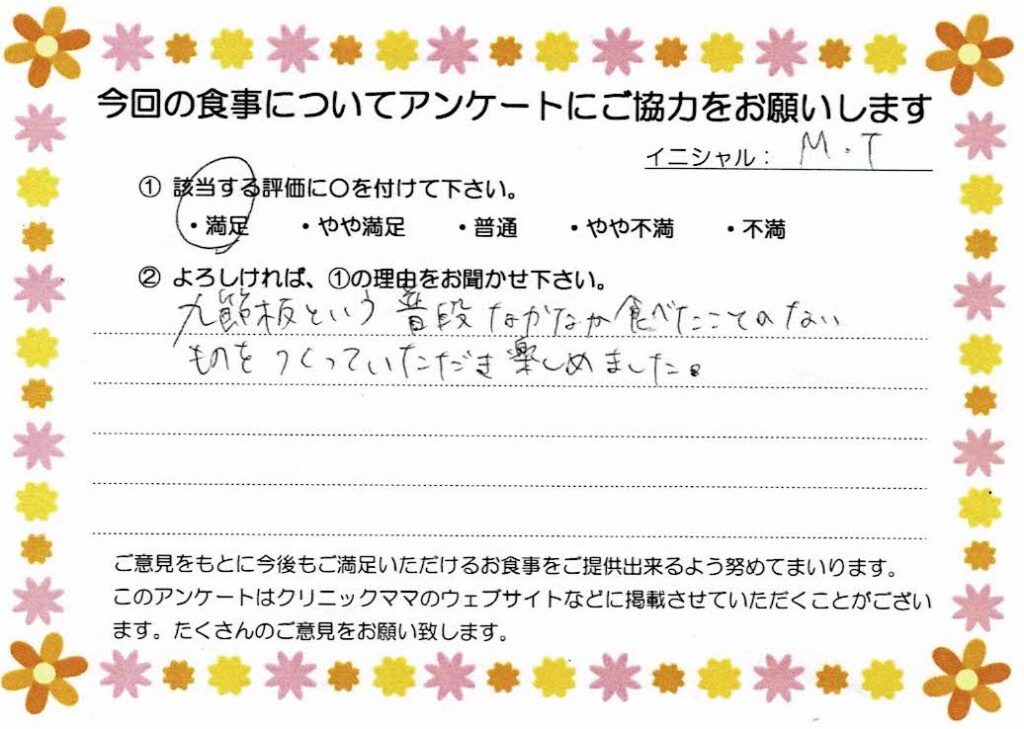 今回の食事についてアンケートにご協力をお願いします
イニシャル： M.T
① 該当する評価に〇を付けて下さい。
・満足 ・やや満足 ・普通 ・やや不満 ・不満
② よろしければ、①の理由をお聞かせ下さい。
九節板という普段なかなか食べたことのない
ものをつくっていただき楽しめました。
ご意見をもとに今後もご満足いただけるお食事をご提供出来るよう努めてまいります。
このアンケートはクリニックママのウェブサイトなどに掲載させていただくことがござい
ます。たくさんのご意見をお願い致します。